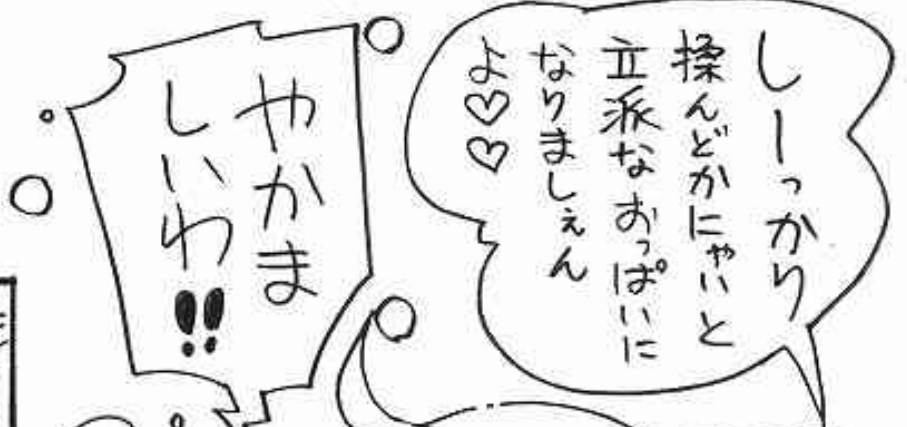 しーっかり
揉んどかにゃいと
立派なおっぱいに
なりましぇん
よ♡♡
やかま
しいわ!!